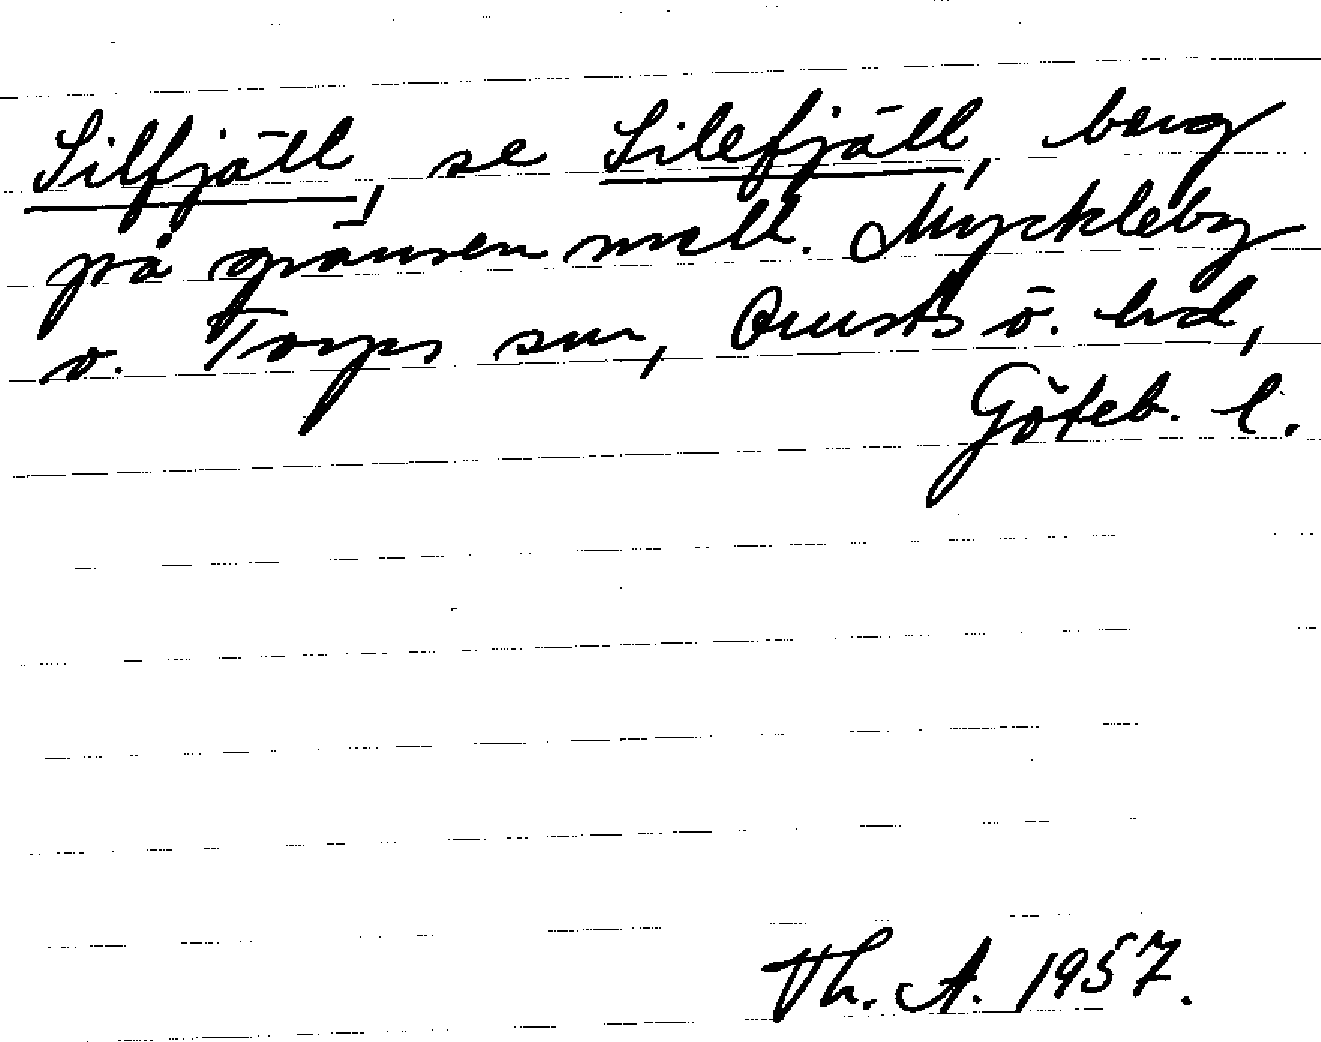 Silfjäll, se Silefjäll, berg
på gränsen mell. Myckleby
o. Torps snr, Orusts ö. hd,
Göteb. l.
Th. A. 1957.